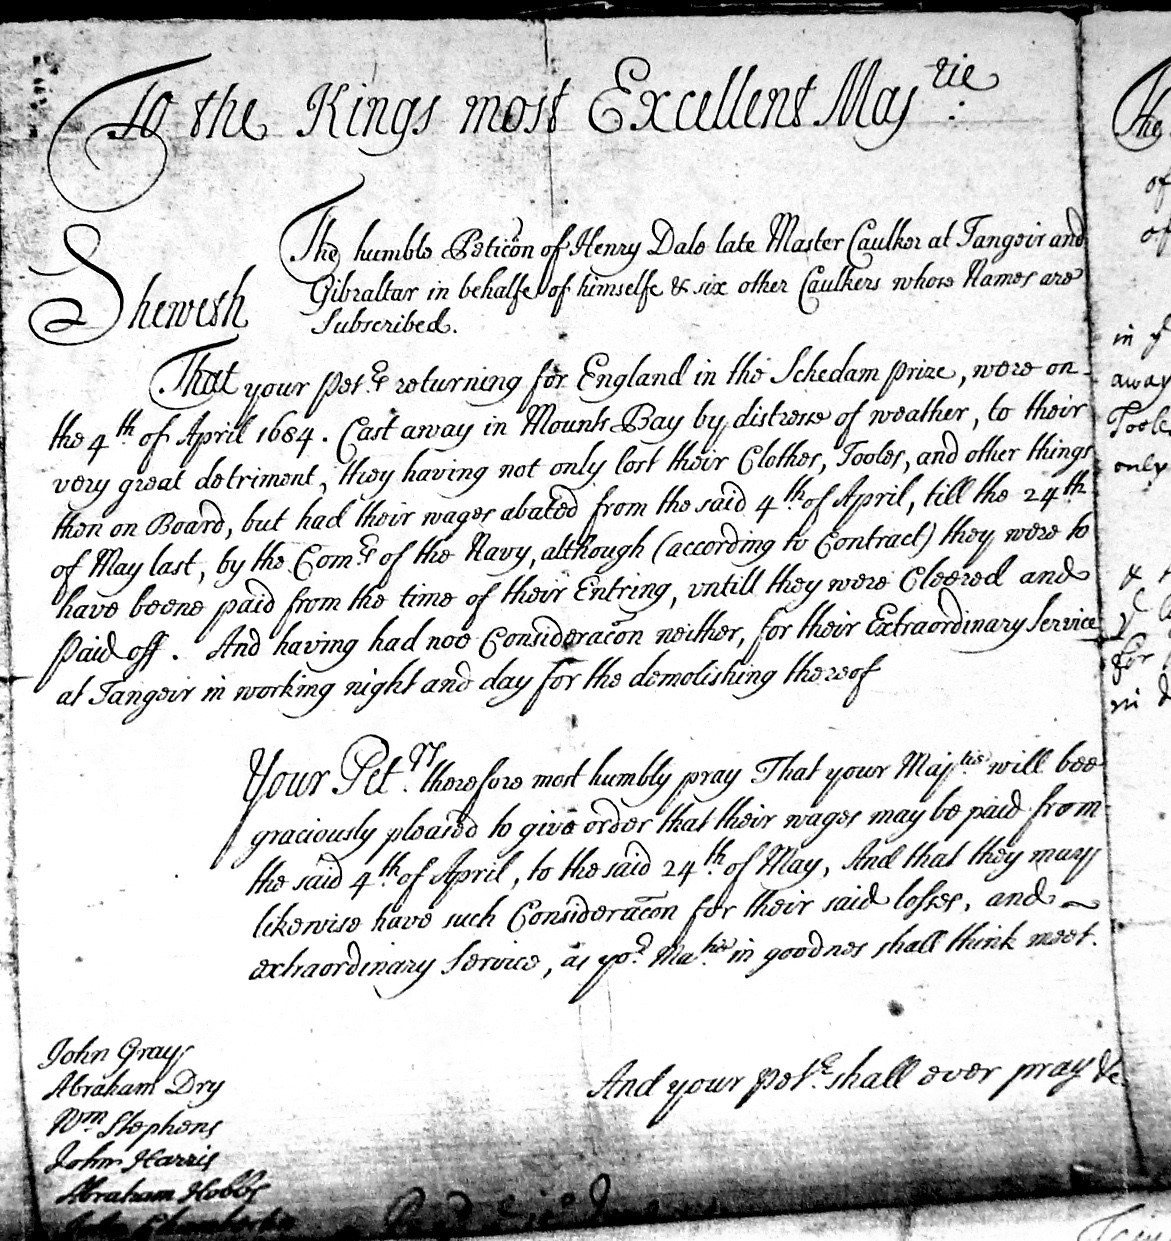 To the Kings most Excellent Maj:tie
The humble Peticon of Henry Dale late Master Caulker at Tangeir and
Gibraltar in behalfe of himselfe & six other Caulkers whose Names are
Subscribed.
Sheweth
That your Pet:rs returning for England in the Schedam prize, were on
the 4th of April 1684. Cast away in Mounts Bay by distresse of weather, to their
very great detriment, they having not only lost their Clothes, Tooles, and other things
then on Board, but had their wages abated from the said 4th of April, till the 24th
of May last, by the Com:rs of the Navy, although (according to Contract) they were to
have beene paid from the time of their Entring, vntill they were Cleered and
Paid off. And having had noe Consideracon neither, for their Extraordinary Service
at Tangeir in working night and day for the demolishing thereof
Your Pet:rs therefore most humbly pray That your Maj:tie will bee
graciously pleased to give order that their wages may be paid from
the said 4th of April, to the said 24th of May, And that they may
likewise have such Consideracon for their said losses, and
extraordinary Service, as yor: Ma:tie in goodnes shall think meet.
And your Pet:rs shall ever pray &c.
John Gray
Abraham Dry
Wm Stephens
John Harris
Abraham Hobbs
John Chamberlin
of
of
in
away
Toole
only
&
for
in